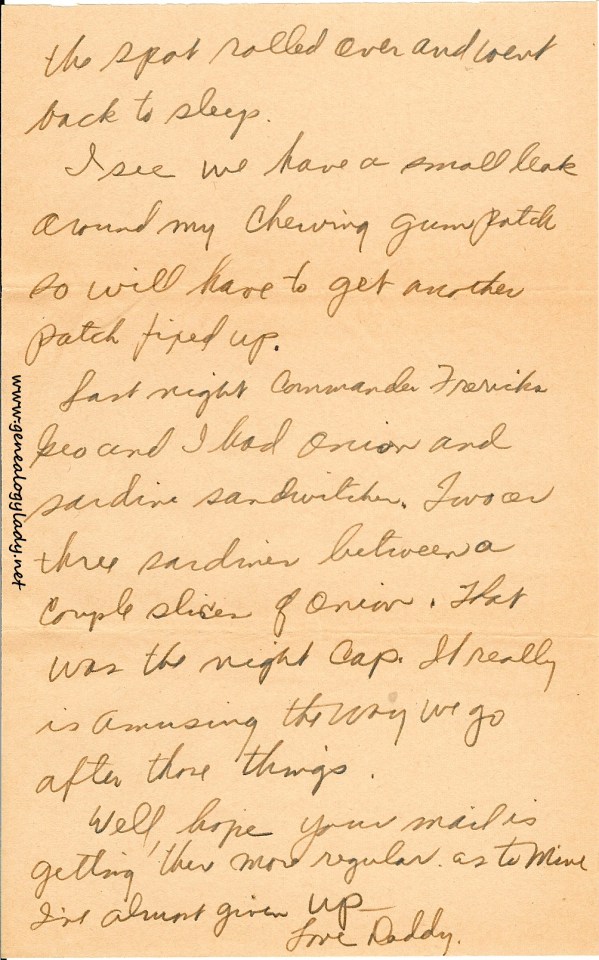 the spot rolled over and went
back to sleep.
I see we have a small leak
around my chewing gum patch
so will have to get another
patch fixed up.
Last night Commander Frericks
Geo and I had onion and
sardine sandwitches. Two or
three sardines between a
couple slices of onion. That
was the night cap. It really
is amusing the way we go
after those things.
Well, hope your mail is
getting ther more regular. as to mine
I've almost given up
Love Daddy.
www.genealogylady.net